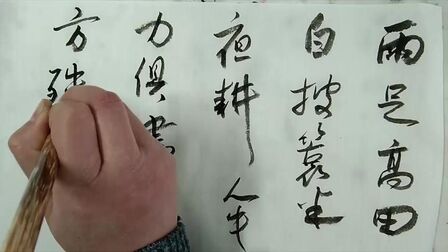 雨足高田
白披蓑半
夜耕人牛
力俱盡
方殊